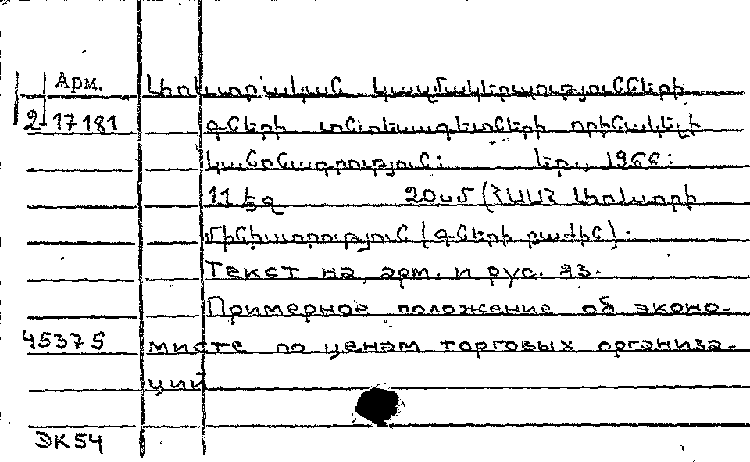 Арм. Առևտրական կազմակերպությունների
2-17181 գների տնտեսագետների օրինակելի
կանոնադրություն: Եր., 1966:
11 էջ 20սմ (ՀՍՍՀ Առևտրի
մինիստրություն (Գների բաժին).
Текст на арм. и рус. яз.
Примерное положение об эконо-
45375 мисте по ценам торговых организа-
ций
ЭК54